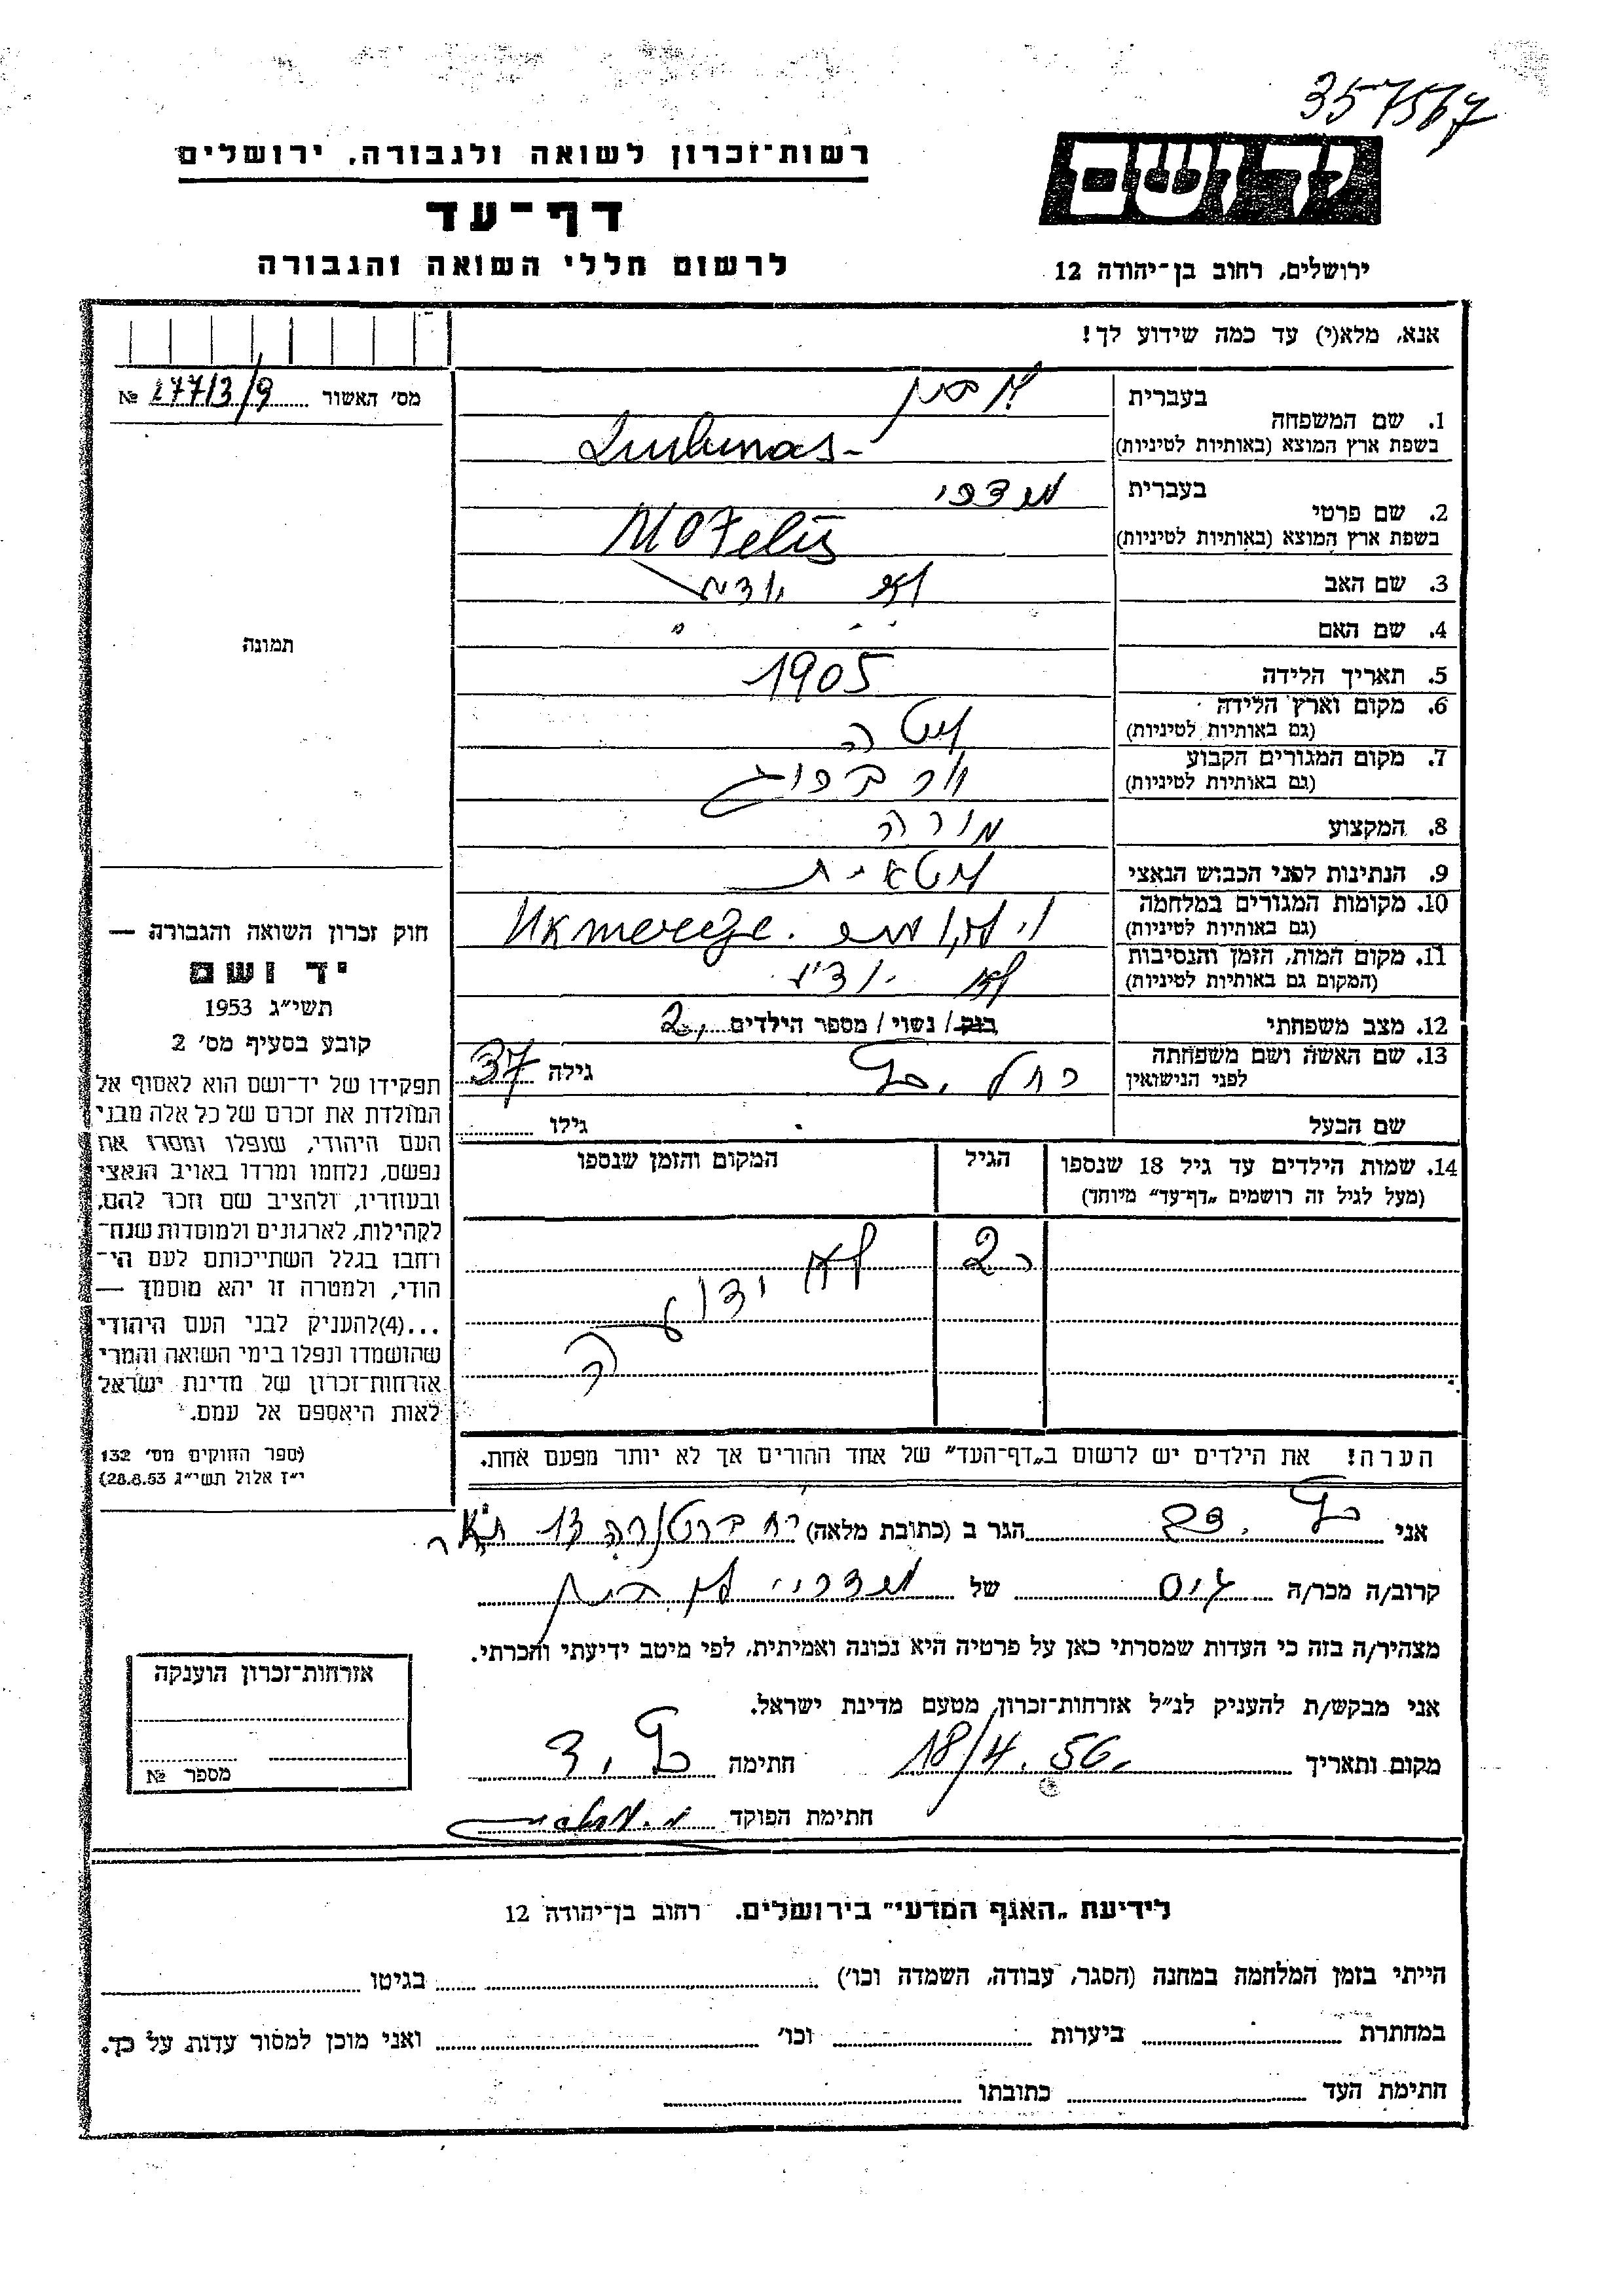 357567
ידושם
רשות־זכרון לשואה ולגבורה, ירושלים
דף־עד
לרשום חללי השואה והגבורה
ירושלים, רחוב בן־יהודה 12
אנא, מלא(י) עד כמה שידוע לך!
מס׳ האשור № 27713/9
תמונה
1. שם המשפחה בעברית
בשפת ארץ המוצא (באותיות לטיניות)
2. שם פרטי בעברית
בשפת ארץ המוצא (באותיות לטיניות) Motelis
3. שם האב לא ידוע
4. שם האם " "
5. תאריך הלידה 1905
6. מקום וארץ הלידה ליטה
(גם באותיות לטיניות)
7. מקום המגורים הקבוע
(גם באותיות לטיניות)
8. המקצוע מורה
9. הנתינות לפני הכבוש הנאצי ליטאית
10. מקומות המגורים במלחמה Ukmerege
(גם באותיות לטיניות)
11. מקום המות, הזמן והנסיבות לא ידוע
(המקום גם באותיות לטיניות)
12. מצב משפחתי רווק / נשוי / מספר הילדים 2
13. שם האשה ושם משפחתה רחל כץ גילה 37
לפני הנישואין
שם הבעל גילו
14. שמות הילדים עד גיל 18 שנספו הגיל המקום והזמן שנספו
(מעל לגיל זה רושמים „דף־עד״ מיוחד)
2 לא ידוע
הערה! את הילדים יש לרשום ב„דף־העד״ של אחד ההורים אך לא יותר מפעם אחת.
חוק זכרון השואה והגבורה —
יד ושם
תשי״ג 1953
קובע בסעיף מס׳ 2
תפקידו של יד־ושם הוא לאסוף אל
המולדת את זכרם של כל אלה מבני
העם היהודי, שנפלו ומסרו את
נפשם, נלחמו ומרדו באויב הנאצי
ובעוזריו, ולהציב שם וזכר להם,
לקהילות, לארגונים ולמוסדות שנח־
רחבו בגלל השתייכותם לעם הי־
הודי, ולמטרה זו יהא מוסמך —
...(4)להעניק לבני העם היהודי
שהושמדו ונפלו בימי השואה והמרי
אזרחות־זכרון של מדינת ישראל
לאות היאספם אל עמם.
(ספר החוקים מס׳ 132
י״ז אלול תשי״ג 28.8.53)
אני כץ הגר ב (כתובת מלאה) רח ברטנורה 13 ת״א
קרוב/ה מכר/ה גיס של מרדכי
מצהיר/ה בזה כי העדות שמסרתי כאן על פרטיה היא נכונה ואמיתית, לפי מיטב ידיעתי והכרתי.
אני מבקש/ת להעניק לנ״ל אזרחות־זכרון, מטעם מדינת ישראל.
מקום ותאריך 18/4.56. חתימה כץ
חתימת הפוקד
אזרחות־זכרון הוענקה
מספר №
לידיעת „האגף המדעי״ בירושלים. רחוב בן־יהודה 12
הייתי בזמן המלחמה במחנה (הסגר, עבודה, השמדה וכו׳) בגיטו
במחתרת ביערות וכו׳ ואני מוכן למסור עדות על כך.
חתימת העד כתובתו